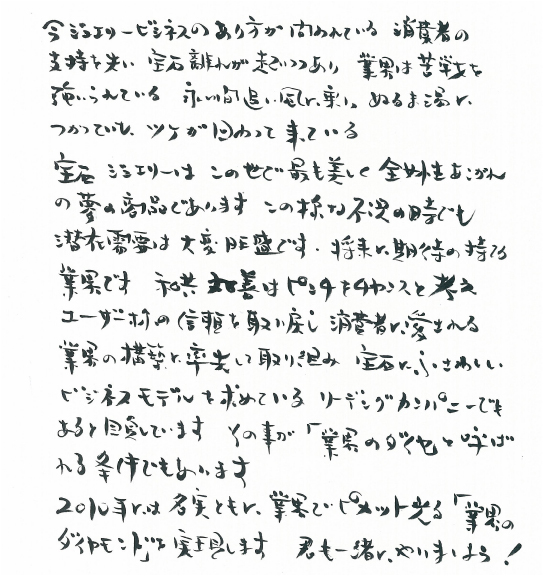 今ジュエリービジネスのあり方が問われている 消費者の
支持を失い 宝石離れが起いつつあり 業界は苦戦を
強いられている 永い間追い風に乗り ぬるま湯に
つかっていた ツケが回わって来ている
宝石 ジュエリーは この世で最も美しく 全女性あこがれ
の夢の商品であります この様な不況の時でも
潜在需要は大変旺盛です。将来に期待の持てる
業界です 私共 は ピンチをチャンスと考え
ユーザーからの信頼を取り戻し 消費者に愛される
業界の構築に率先して取り組み 宝石にふさわしい
ビジネスモデルを求めている リーディングカンパニーでも
あると自負しています その事が「業界のダイヤ」と呼ば
れる条件でもあります
2010年には 名実ともに、業界でピカット光る「業界の
ダイヤモンド」を実現します 君も一緒に、やりましょう!